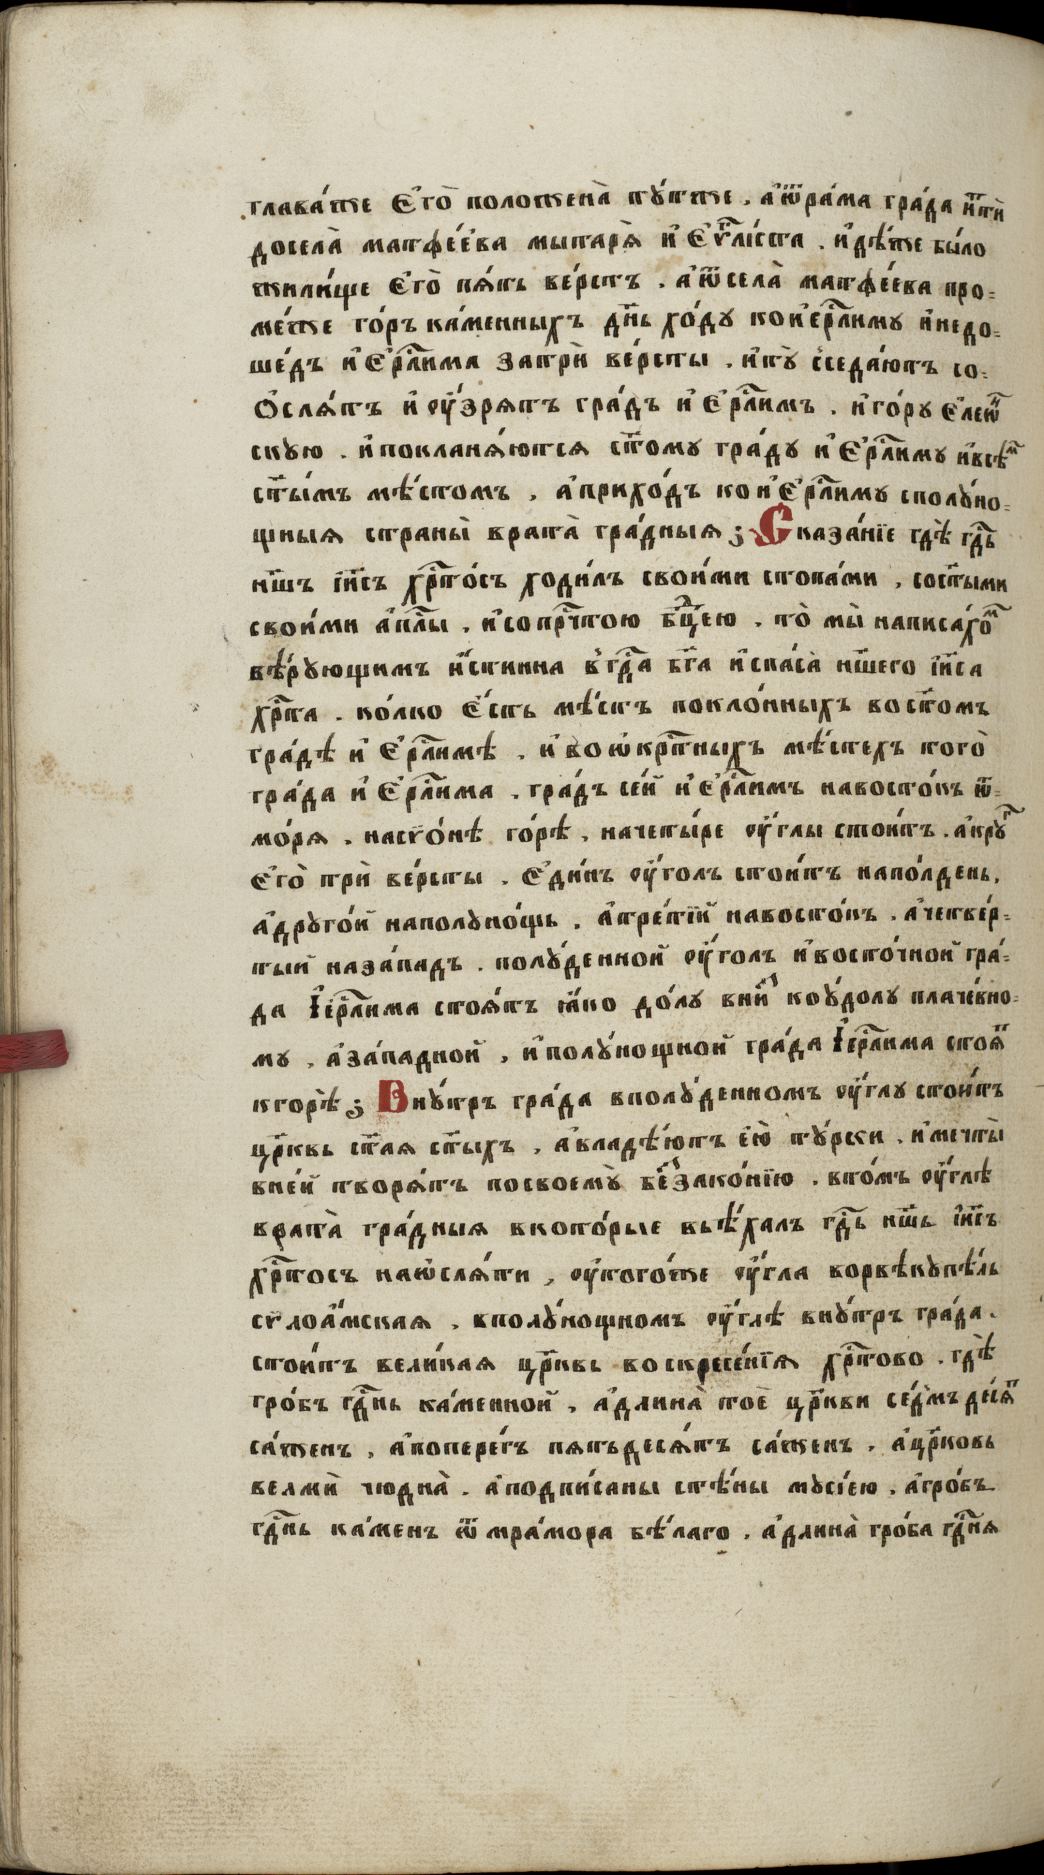 глава́же є҆го̀ положена̀ тꙋ́тже . а҆ѿра́ма гра́да и҆тти̑
досела̀ матфе́ева мытаря̀ и҆ є҆ѵⷢ҇ли́ста . и҆дѣ́же бы́ло
жили́ще є҆го̀ пя́ть ве́рстъ . а҆ѿсела̀ матфе́ева про-
ме́же го́ръ ка́менныхъ дн҃ь хо́дꙋ кои҆єрⷭ҇ли́мꙋ и҆недо-
ше́дъ и҆ є҆рⷭ҇ли́ма затри̑ ве́рсты . и҆тꙋ̀ сседа́ютъ со-
ѻ҆сля́тъ и҆ оу҆́зрятъ гра́дъ и҆ є҆рⷭ҇ли́мъ . и҆го́рꙋ є҆леѡⷩ҇
скꙋю . и҆покланя́ются ст҃о́мꙋ гра́дꙋ и҆ є҆рⷭ҇ли́мꙋ и҆всѣⷨ҇
ст҃ы́мъ мѣ́стомъ . а҆прихо́дъ кои҆ є҆рⷭ҇ли́мꙋ сполꙋно-
щныя страны̀ врата̀ гра́дныя ; Сказа́нїе гдѣ̀ гдⷭ҇ь
нш҃ъ і҆и҃съ хрⷭ҇то́съ ходи́лъ свои́ми стопа́ми , сост҃ы́ми
свои́ми а҆пⷭ҇лы . и҆сопрⷱ҇тою бцⷣ҇ею . то̀ мы̀ написа́хоⷨ
вѣ́рꙋющимъ и҆́стинна в гдⷭ҇а бг҃а и҆спа́са̀ нш҃его і҆и҃са
хрⷭ҇та . ко́лко є҆́сть мѣ́стъ покло́нныхъ вост҃о́мъ
гра́дѣ и҆ є҆рⷭ҇ли́мѣ . и҆ воѡ҆крⷭ҇тныхъ мѣ́стехъ того̀
гра́да и҆ є҆рⷭ҇ли́ма . гра́дъ се́й и҆ є҆рⷭ҇ли́мъ навосто́къ ѿ-
мо́ря . насѵо́нѣ го́рѣ , начеты́ре оу҆́глы стои́тъ . а҆крꙋⷢ҇
є҆го̀ три̑ ве́рсты . є҆ди́нъ оу҆́голъ стои́тъ напо́лдень ,
а҆дрꙋго́й наполꙋно́щь . а҆тре́тїй навосто́къ . а҆четве́р-
тый наза́падъ . полꙋ́денной оу҆́голъ и҆восто́чной гра́-
да І҆єрⷭ҇ли́ма стоя́тъ ꙗ҆́ко до́лꙋ вниⷥ коу҆́долꙋ плаче́вно-
мꙋ . а҆за́падной , и҆полꙋ́нощной гра́да І҆єрⷭ҇ли́ма стояⷮ
кгорѣ̀ ; Внꙋ́трь гра́да вполꙋ́денномъ оу҆́глꙋ стои́тъ
црⷪ҇квь ст҃ая ст҃ыхъ , а҆владѣ́ютъ е҆ю̀ тꙋ́рки . и҆мечты̀
вней творя́тъ посвоемꙋ̀ беⷥзако́нїю . вто́мъ оу҆́глѣ
врата̀ гра́дныя вкото́рые въѣ́халъ гдⷭ҇ь нш҃ь і҆и҃съ
хрⷭ҇то́съ наѡ҆сля́ти , оу҆того́же оу҆́гла ворвѣкꙋпѣ́ль
сѵлоа́мская . вполꙋ́нощномъ оу҆́глѣ внꙋ́трь гра́да .
стои́тъ вели́кая црⷪ҇квь воскресе́нїя хрⷭ҇то́во . гдѣ̀
гро́бъ гдⷭ҇нь ка́менной , а҆длина̀ тоѐ црⷪ҇кви се́дмъ деся́ⷮ
са́женъ , а҆попере́гъ пятьдеся́тъ са́женъ . а҆црⷪ҇ковь
велми̑ чюдна̀ . а҆подпи́саны стѣ́ны мꙋсі́ею . а҆гро́бъ
гдⷭ҇нь ка́менъ ѿ мра́мора бѣ́лаго . а҆длина̀ гро́ба гдⷭ҇ня